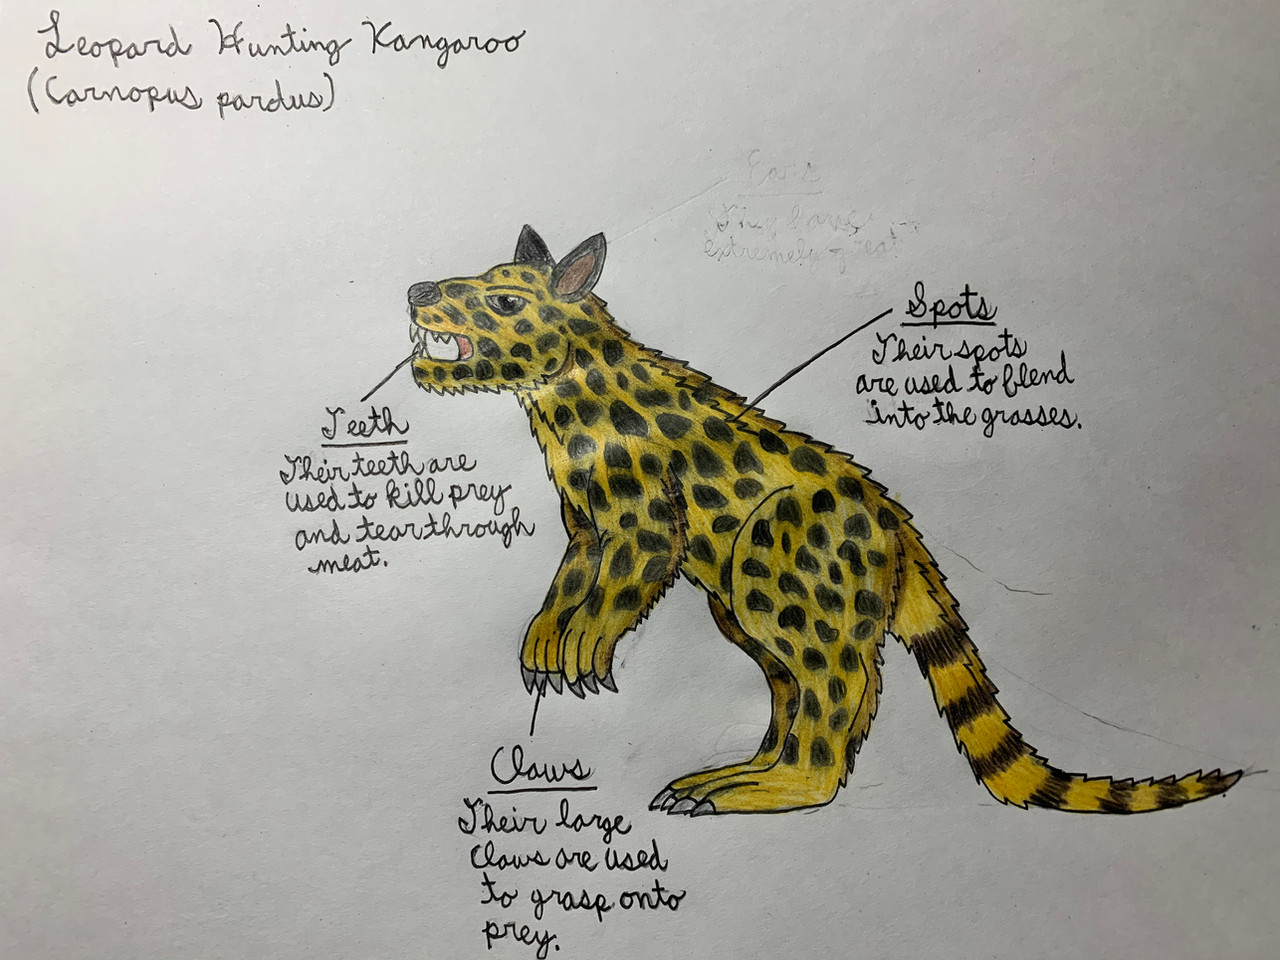 Leopard Hunting Kangaroo
(Carnopus pardus)
Ears
They have
extremely great
Spots
Their spots
are used to blend
into the grasses.
Teeth
Their teeth are
used to kill prey
and tear through
meat.
Claws
Their large
claws are used
to grasp onto
prey.